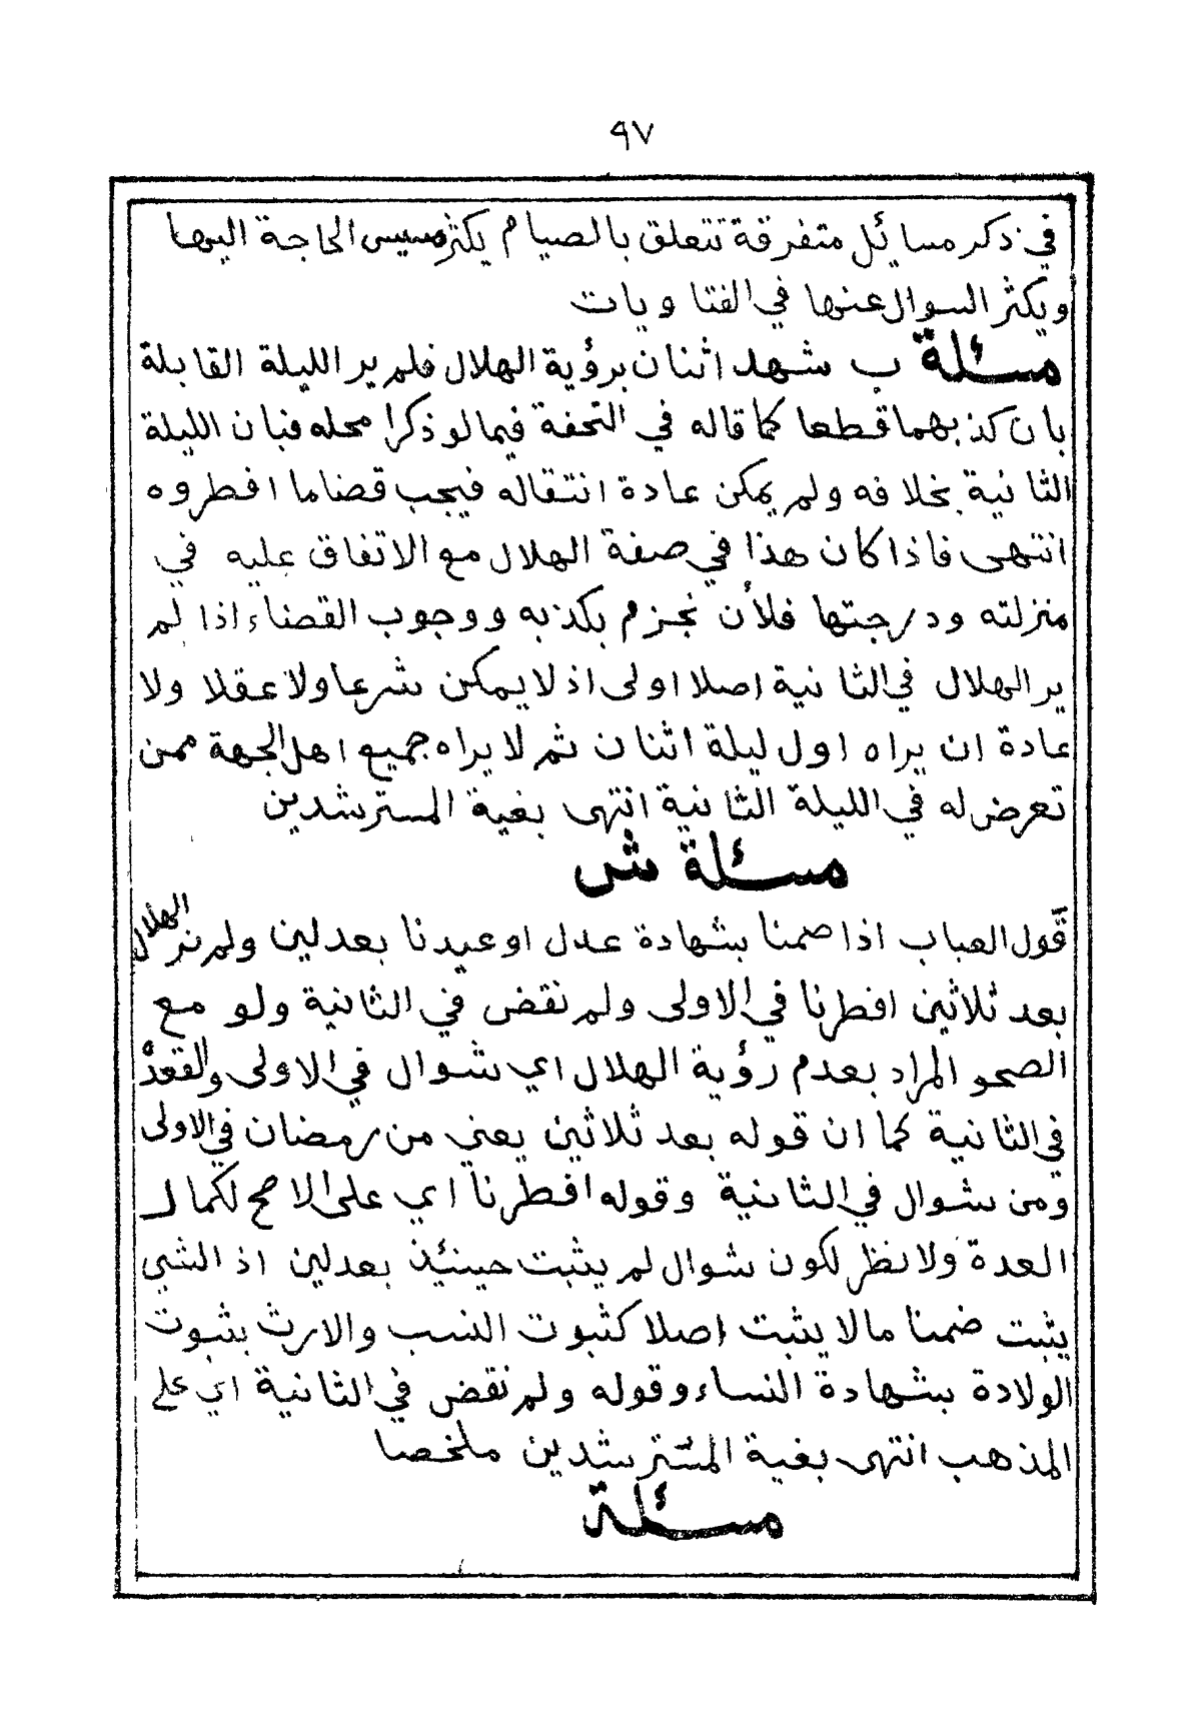 ٩٧
في ذكر مسائل متفرقة تتعلق بالصيام يكثر مسيس الحاجة اليها
ويكثر السوال عنها في الفتاويات
مسئلة ب شهد اثنان برؤية الهلال فلم ير الليلة القابلة
بان كذبهما قطعا كما قاله في التحفة فيما لو ذكرا محله فبان الليلة
الثانية بخلافه ولم يمكن عادة انتقاله فيجب قضاما افطروه
انتهى فاذا كان هذا في صفة الهلال مع الاتفاق عليه في
منزلته ودرجتها فلأن نجزم بكذبه ووجوب القضاء اذا لم
ير الهلال في الثانية اصلا اولى اذ لا يمكن شرعا ولا عقلا ولا
عادة ان يراه اول ليلة اثنان ثم لا يراه جميع اهل الجهة ممن
تعرض له في الليلة الثانية انتهى بغية المسترشدين
مسئلة ش
قول العباب اذا صمنا بشهادة عدل او عيدنا بعدلين ولم نر الهلال
بعد ثلاثين افطرنا في الاولى ولم نقض في الثانية ولو مع
الصحو المراد بعدم رؤية الهلال اي شوال في الاولى والقعدة
في الثانية كما ان قوله بعد ثلاثين يعني من رمضان في الاولى
ومن شوال في الثانية وقوله افطرنا اي على الاصح لكمال
العدة ولا نظر لكون شوال لم يثبت حينئذ بعدلين اذ الشي
يثبت ضمنا ما لا يثبت اصلا كثبوت النسب والارث بثبوت
الولادة بشهادة النساء وقوله ولم نقض في الثانية اي على
المذهب انتهى بغية المسترشدين ملخصا
مسئلة